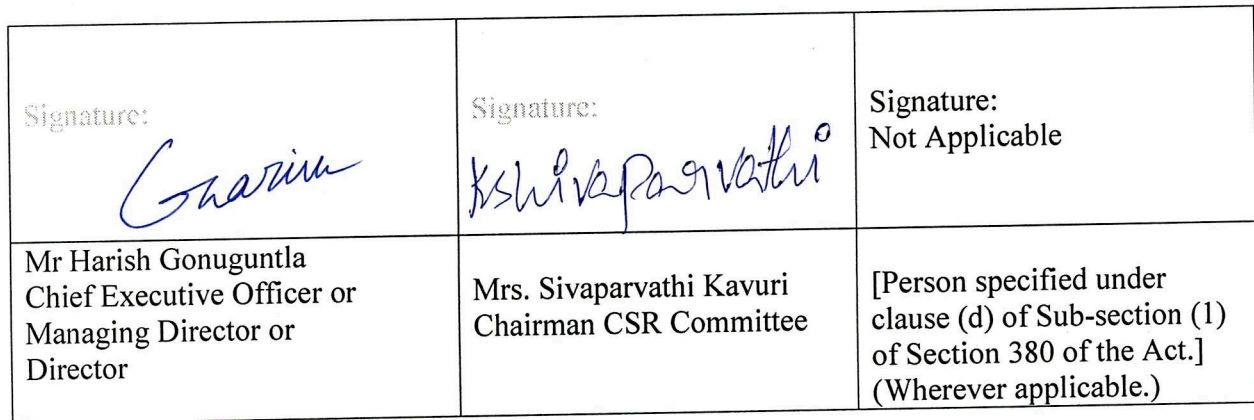 Signature:
Kshivaparvathi
Signature:
Signature:
Not Applicable
Mr Harish Gonuguntla
Chief Executive Officer or
Managing Director or
Director
Mrs. Sivaparvathi Kavuri
Chairman CSR Committee
[Person specified under
clause (d) of Sub-section (1)
of Section 380 of the Act.]
(Wherever applicable.)